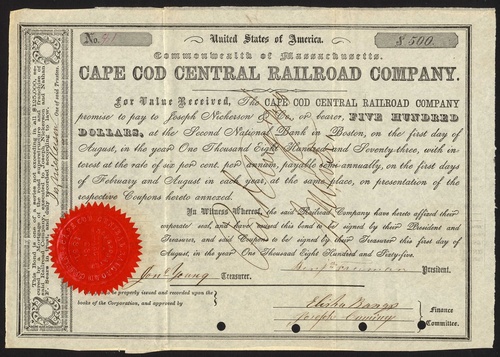 No. 91
United States of America.
$500.
Commonwealth of Massachusetts.
CAPE COD CENTRAL RAILROAD COMPANY.
For Value Received, The CAPE COD CENTRAL RAILROAD COMPANY
promise to pay to Joseph Nickerson & Co., or bearer, FIVE HUNDRED
DOLLARS, at the Second National Bank in Boston, on the first day of
August, in the year One Thousand Eight Hundred and Seventy-three, with in-
terest at the rate of six per cent. per annum, payable semi-annually, on the first days
of February and August in each year, at the same place, on presentation of the
respective Coupons hereto annexed.
In Witness Whereof, the said Railroad Company have hereto affixed their
corporate seal, and have caused this bond to be signed by their President and
Treasurer, and said Coupons to be signed by their Treasurer this first day of
August, in the year One Thousand Eight Hundred and Sixty-five.
President.
Jonn Young Treasurer.
properly issued and recorded upon the
books of the Corporation, and approved by
Elisha Bangs
Joseph Cummings
Finance
Committee.
This Bond is one of a series not exceeding in all $105,000, se-
cured by a Mortgage of the road equipments and franchise of
said Railroad Company
Joseph Nickerson and Nathan